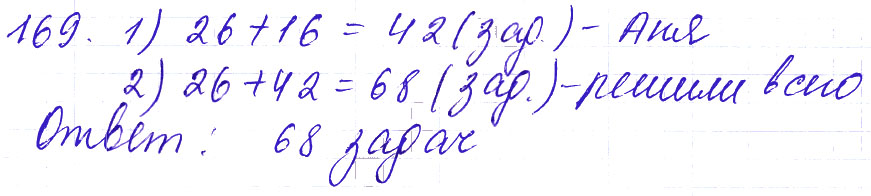 169. 1) 26+16 = 42 (зад.) - Аня
2) 26+42 = 68 (зад.) - решили всего
Ответ: 68 задач